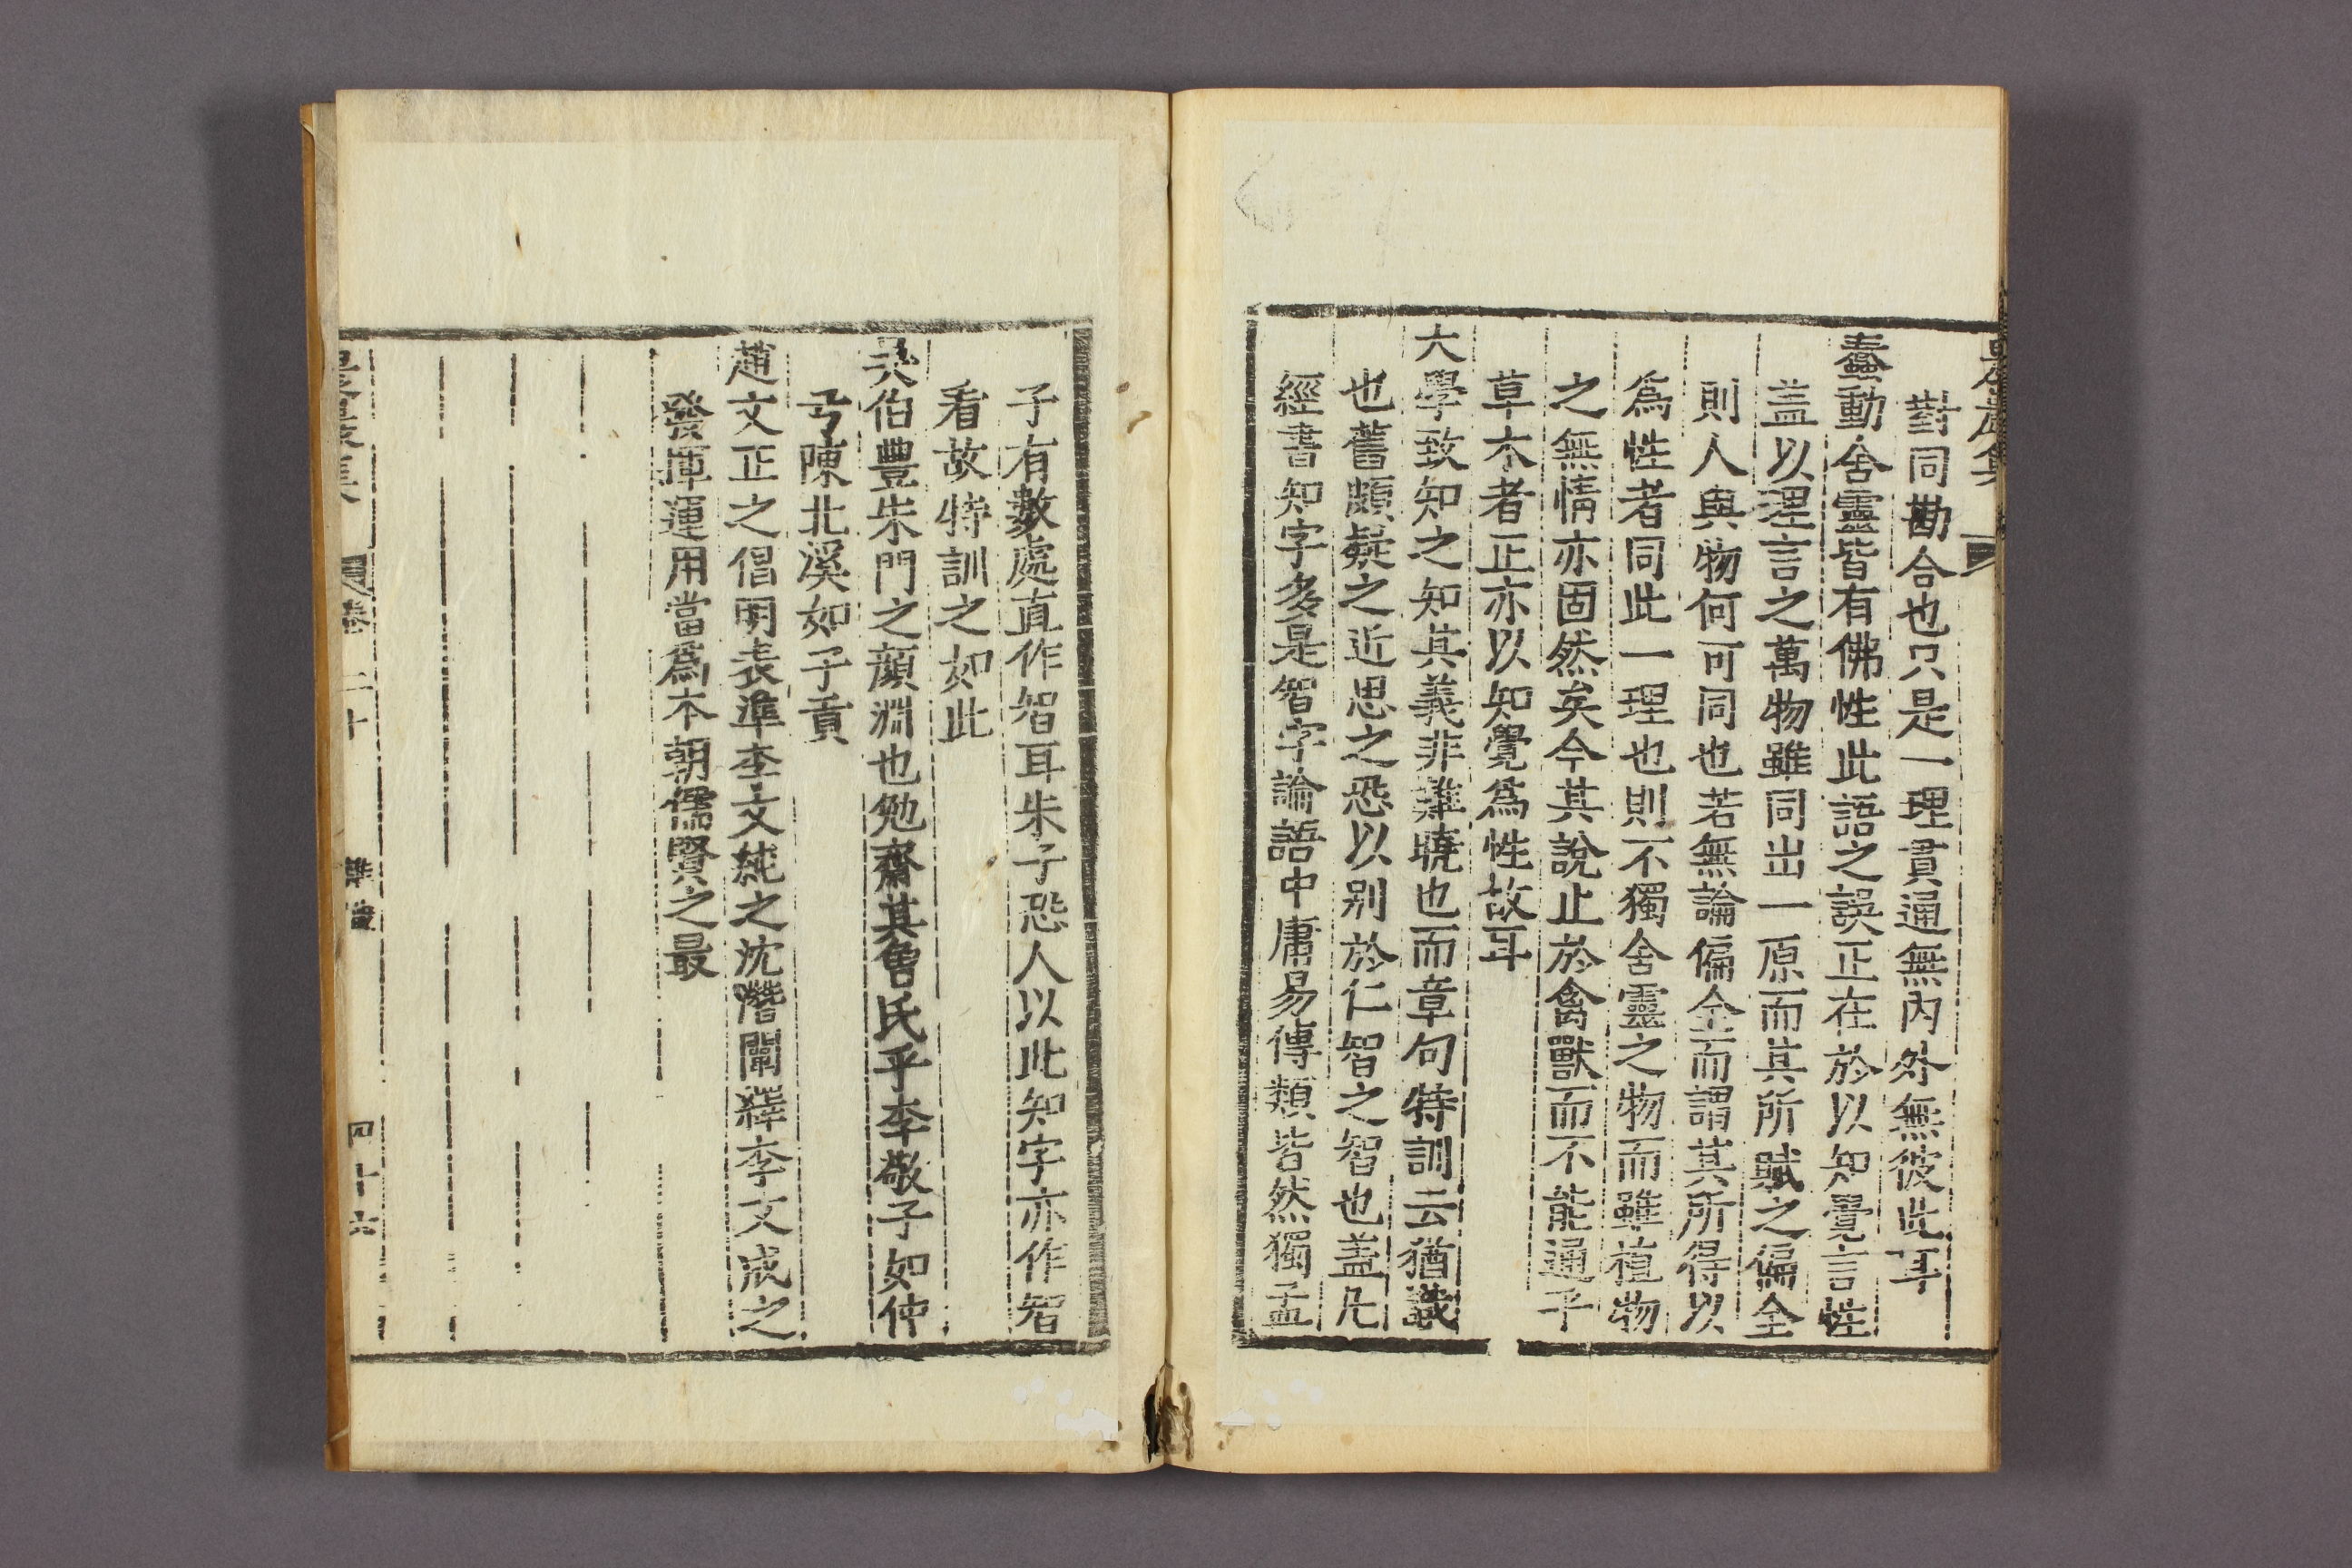 對同勘合也只是一理貫通無內外無彼此耳
蠢動含靈皆有佛性此語之誤正在於以知覺言性
盖以理言之萬物雖同出一原而其所賦之偏全
則人與物何可同也若無論偏全而謂其所得以
爲性者同此一理也則不獨含靈之物而雖植物
之無情亦固然矣今其說止於禽獸而不能通乎
草木者正亦以知覺爲性故耳
大學致知之知其義非難曉也而章句特訓云猶識
也舊頗疑之近思之恐以別於仁智之智也盖凡
經書知字多是智字論語中庸易傳類皆然獨孟
子有數處直作智耳朱子恐人以此知字亦作智
看故特訓之如此
吳伯豐朱門之顔淵也勉齋其魯氏乎李敬子如仲
弓陳北溪如子貢
趙文正之倡明表準李文純之沈潛闡繹李文成之
發揮運用當爲本朝儒賢之最
卷二十
雜識
四十六